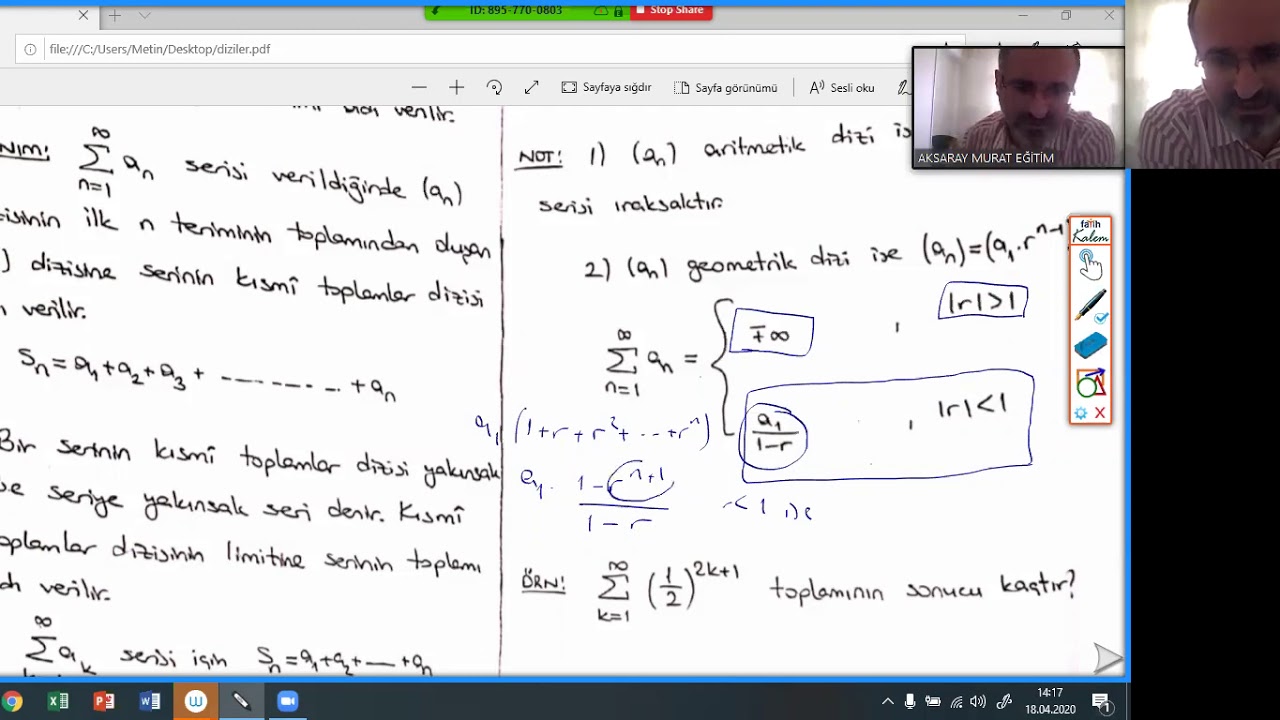 ID: 895-770-0803
Stop Share
file:///C:/Users/Metin/Desktop/diziler.pdf
Sayfaya sığdır
Sayfa görünümü
Sesli oku
AKSARAY MURAT EĞİTİM
verilir.
NIM! ∞ ∑ n=1 aₙ serisi verildiğinde (aₙ)
isinin ilk n teriminin toplamından oluşan
) dizisine serinin kısmî toplamlar dizisi
verilir.
Sₙ=a₁+a₂+a₃+ --------- +aₙ
Bir serinin kısmî toplamlar dizisi yakınsak
se seriye yakınsak seri denir. Kısmî
oplamlar dizisinin limitine serinin toplamı
dı verilir.
∞ ∑ aₖ serisi için Sₙ=a₁+a₂+---+aₙ
NOT! 1) (aₙ) aritmetik dizi is
serisi ıraksaktır.
2) (aₙ) geometrik dizi ise (aₙ)=(a₁.rⁿ⁻¹)
∞ ∑ n=1 aₙ = { ∓∞ , |r|>1
a₁/(1-r) , |r|<1
a₁ (1+r+r²+---+rⁿ)
a₁. (1-rⁿ⁺¹)/(1-r) r<1 ise
ÖRN! ∞ ∑ k=1 (1/2)^(2k+1) toplamının sonucu kaçtır?
fatih
Kalem
14:17
18.04.2020